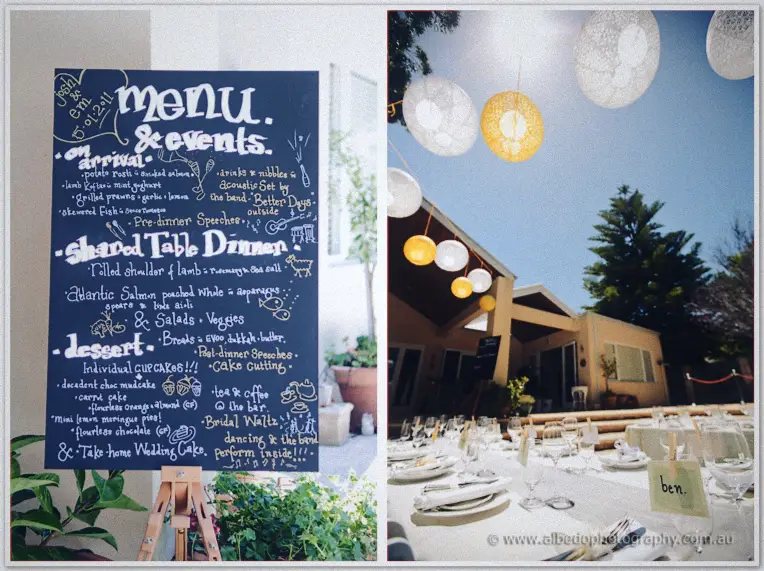 Josh
& em
15·01·2011
menu.
& events.
·on arrival·
potato rosti w smoked salmon
lamb koftas w mint yoghurt
·grilled prawns w garlic + lemon
skewered fish w
·drinks & nibbles w
acoustic set by
the band "Better Days"
outside
·Pre-dinner Speeches·
·Shared Table Dinner·
Rolled shoulder of lamb w rosemary & sea salt
Atlantic Salmon poached whole w asparagus
spears & lime aioli
& Salads + Veggies
·dessert·
·Breads w EVOO, dukkah, butter.
Individual CUPCAKES!!!
·Post-dinner Speeches·
·Cake Cutting·
·decadent choc mudcake
·carrot cake
·flourless orange & almond (GF)
·mini lemon meringue pies!
·flourless chocolate (GF)
& ·Take-home Wedding Cake.
·tea & coffee
@ the bar
·Bridal Waltz
dancing & the band
perform inside!!!
ben.
© www.albedophotography.com.au